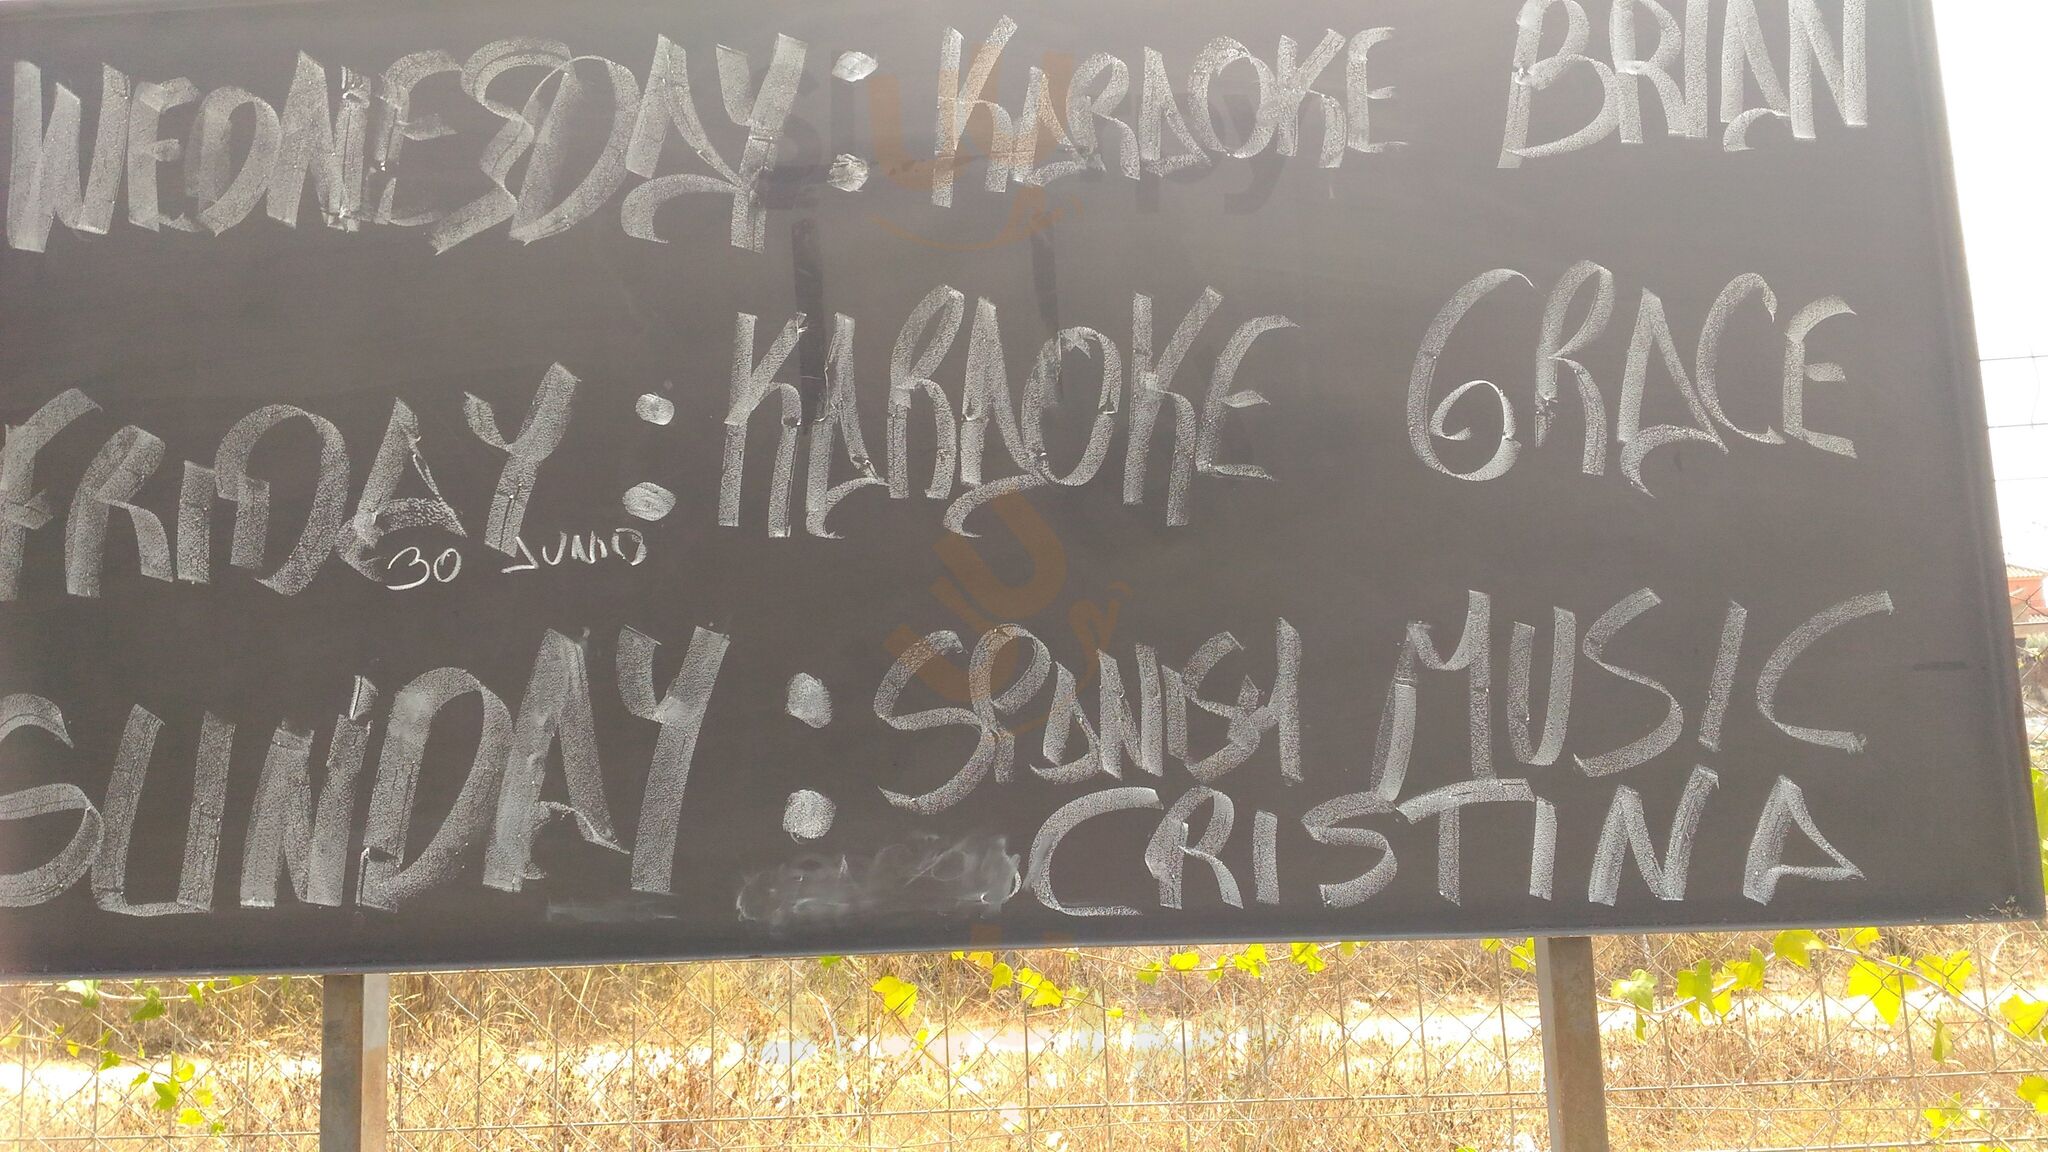 WEDNESDAY: KARAOKE BRIAN
FRIDAY: KARAOKE GRACE
30 JUNIO
SUNDAY: SPANISH MUSIC
CRISTINA